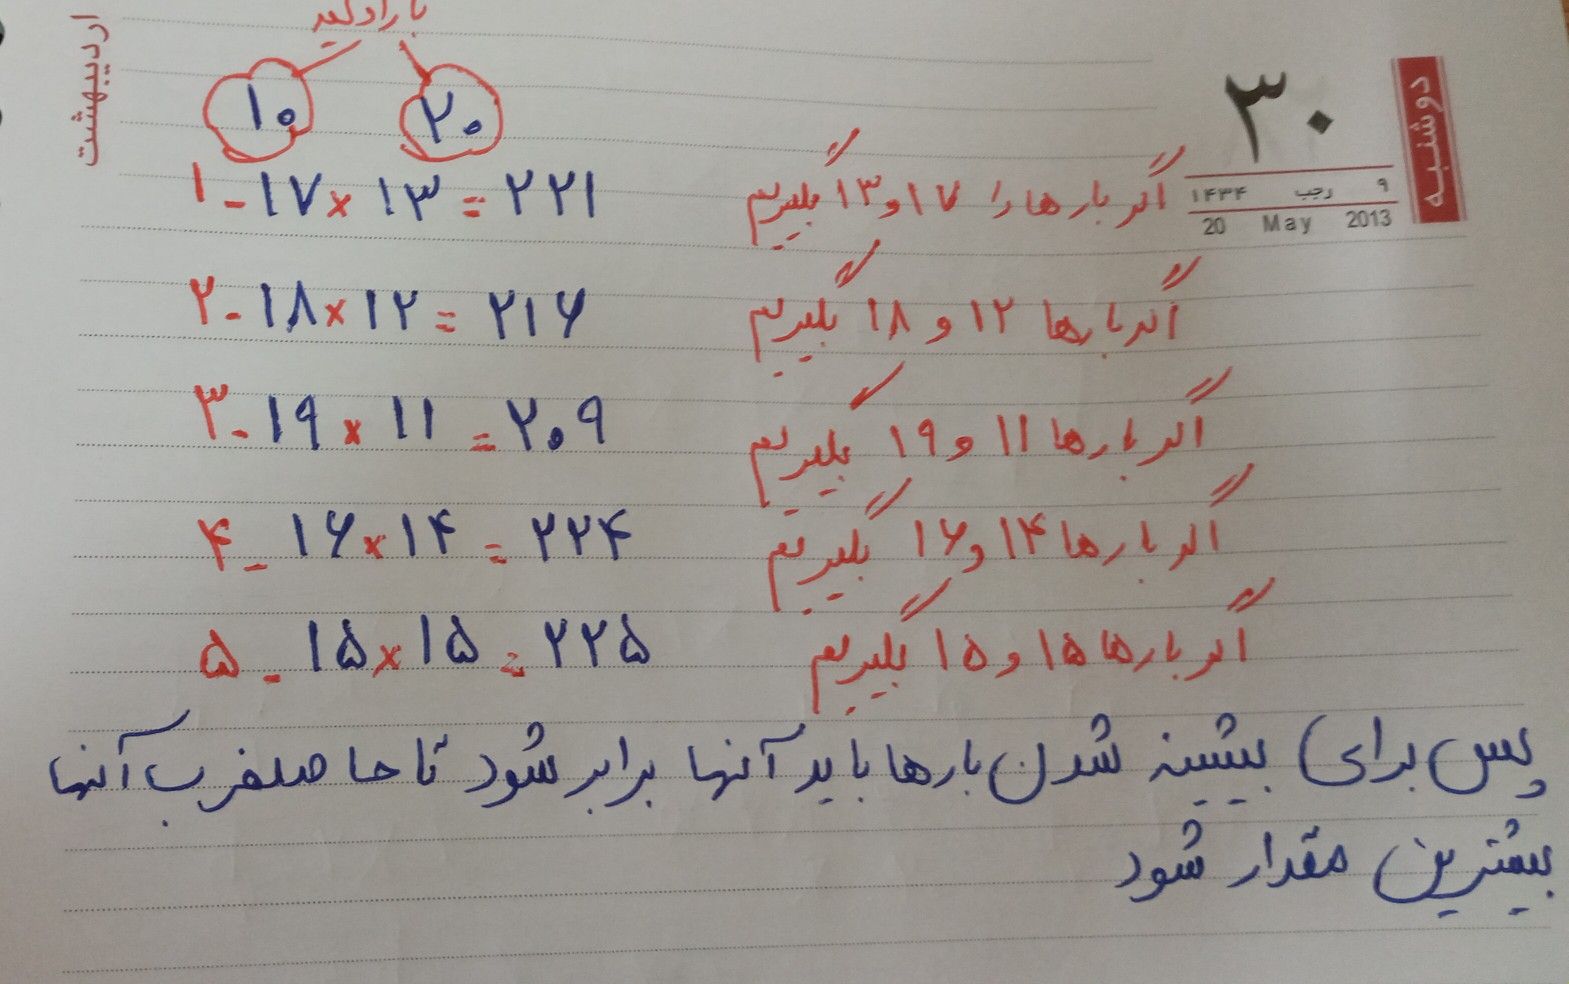 بار اولیه
اردیبهشت
۱۰ ۲۰
دوشنبه
۳۰
۹ رجب ۱۴۳۴
20 May 2013
۱- ۱۷ × ۱۳ = ۲۲۱ اگر بارها را ۱۷ و ۱۳ بگیریم
۲- ۱۸ × ۱۲ = ۲۱۶ اگر بارها ۱۲ و ۱۸ بگیریم
۳- ۱۹ × ۱۱ = ۲۰۹ اگر بارها ۱۱ و ۱۹ بگیریم
۴- ۱۶ × ۱۴ = ۲۲۴ اگر بارها ۱۴ و ۱۶ بگیریم
۵- ۱۵ × ۱۵ = ۲۲۵ اگر بارها ۱۵ و ۱۵ بگیریم
پس برای بیشینه شدن بارها باید آنها برابر شود تا حاصلضرب آنها
بیشترین مقدار شود